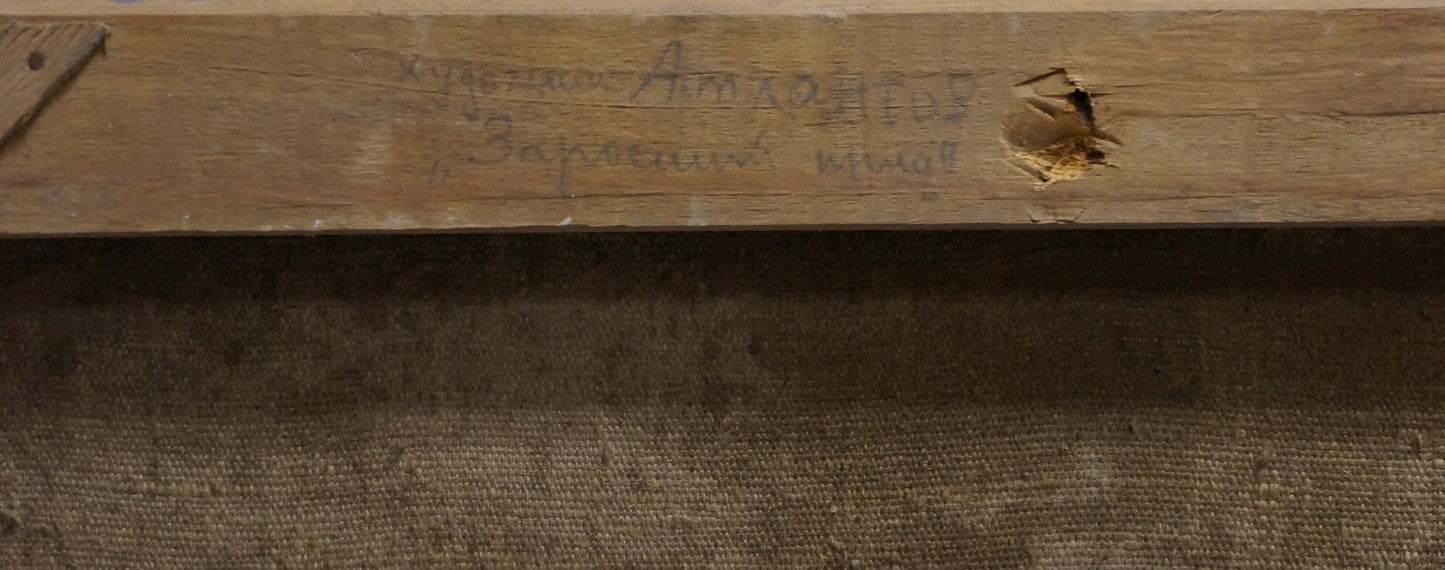 художник Атлантов
„Заросший пруд"